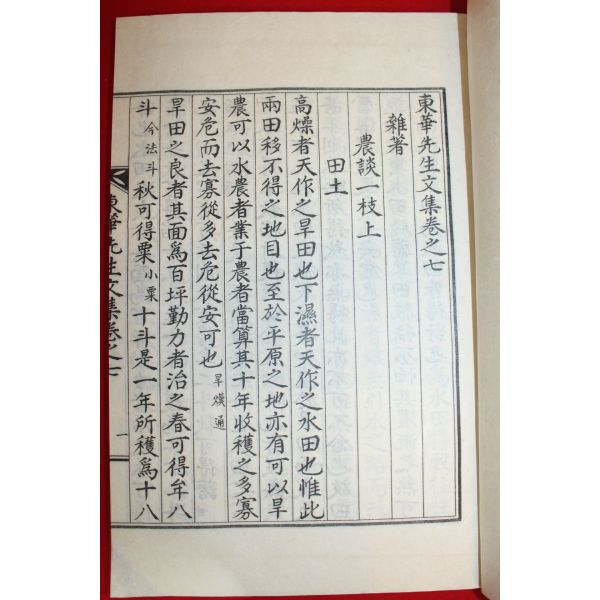 東華先生文集卷之七
雜著
農談一枝上
田土
高燥者天作之旱田也下濕者天作之水田也惟此
兩田移不得之地目也至於平原之地亦有可以旱
農可以水農者業于農者當算其十年收穫之多寡
安危而去寡從多去危從安可也旱熯通
旱田之良者其面爲百坪勤力者治之春可得牟八
斗今法斗秋可得粟小粟十斗是一年所穫爲十八
東華先生文集卷之七 一